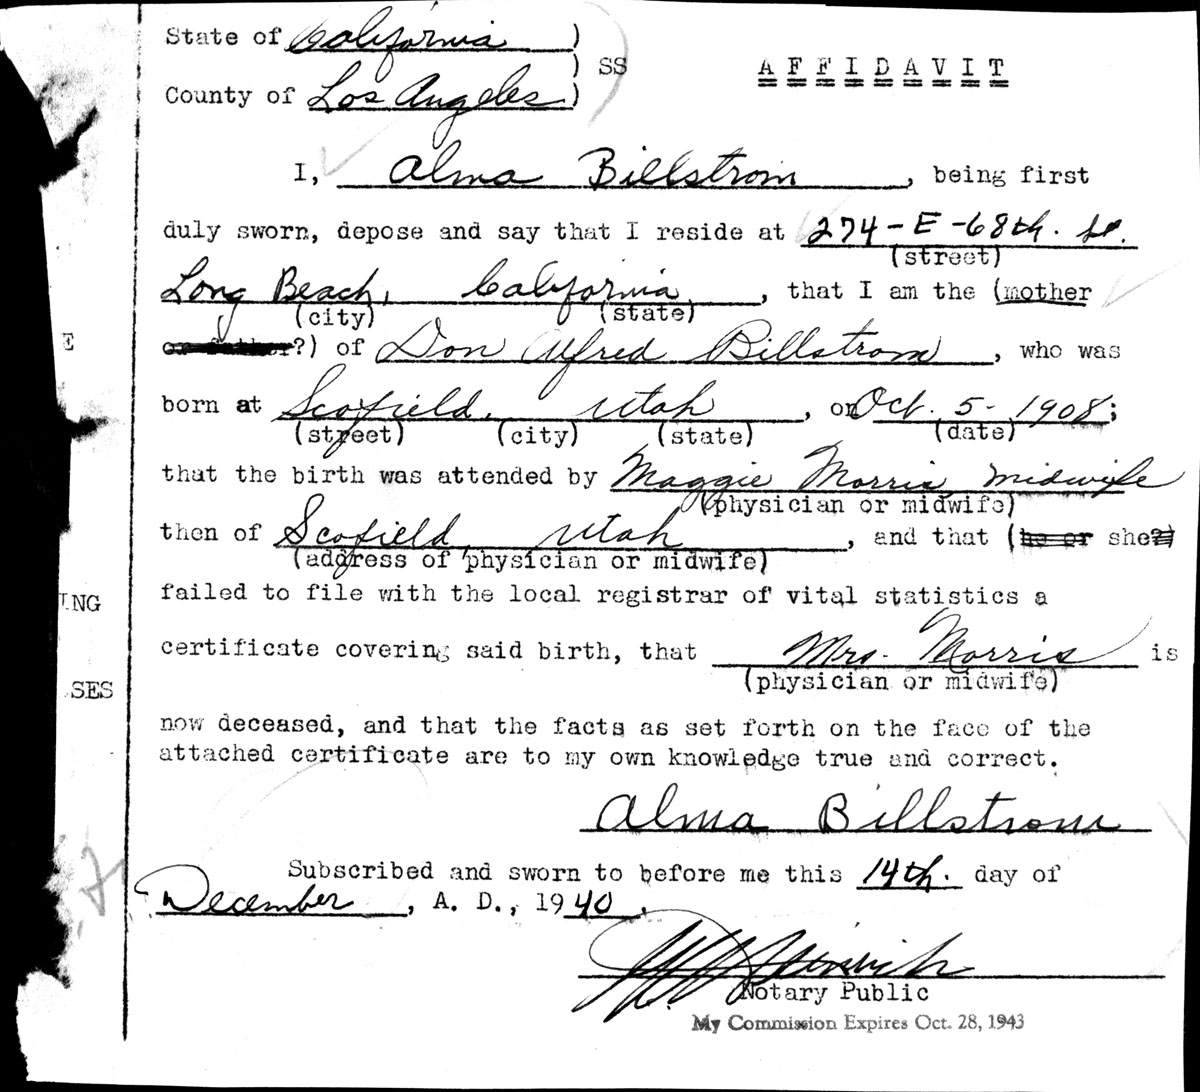 State of California )
) SS AFFIDAVIT
County of Los Angeles )
I, Alma Billstrom, being first
duly sworn, depose and say that I reside at 274-E-68th. St.
(street)
Long Beach, California, that I am the (mother
(city) (state)
or father?) of Don Alfred Billstrom, who was
E
born at Scofield, Utah, on Oct. 5-1908;
(street) (city) (state) (date)
that the birth was attended by Maggie Morris, midwife
(physician or midwife)
then of Scofield, Utah, and that (he or she?)
(address of physician or midwife)
failed to file with the local registrar of vital statistics a
ING
certificate covering said birth, that Mrs. Morris is
(physician or midwife)
SES
now deceased, and that the facts as set forth on the face of the
attached certificate are to my own knowledge true and correct.
Alma Billstrom
Subscribed and sworn to before me this 14th. day of
December, A. D., 1940.
Notary Public
My Commission Expires Oct. 28, 1943